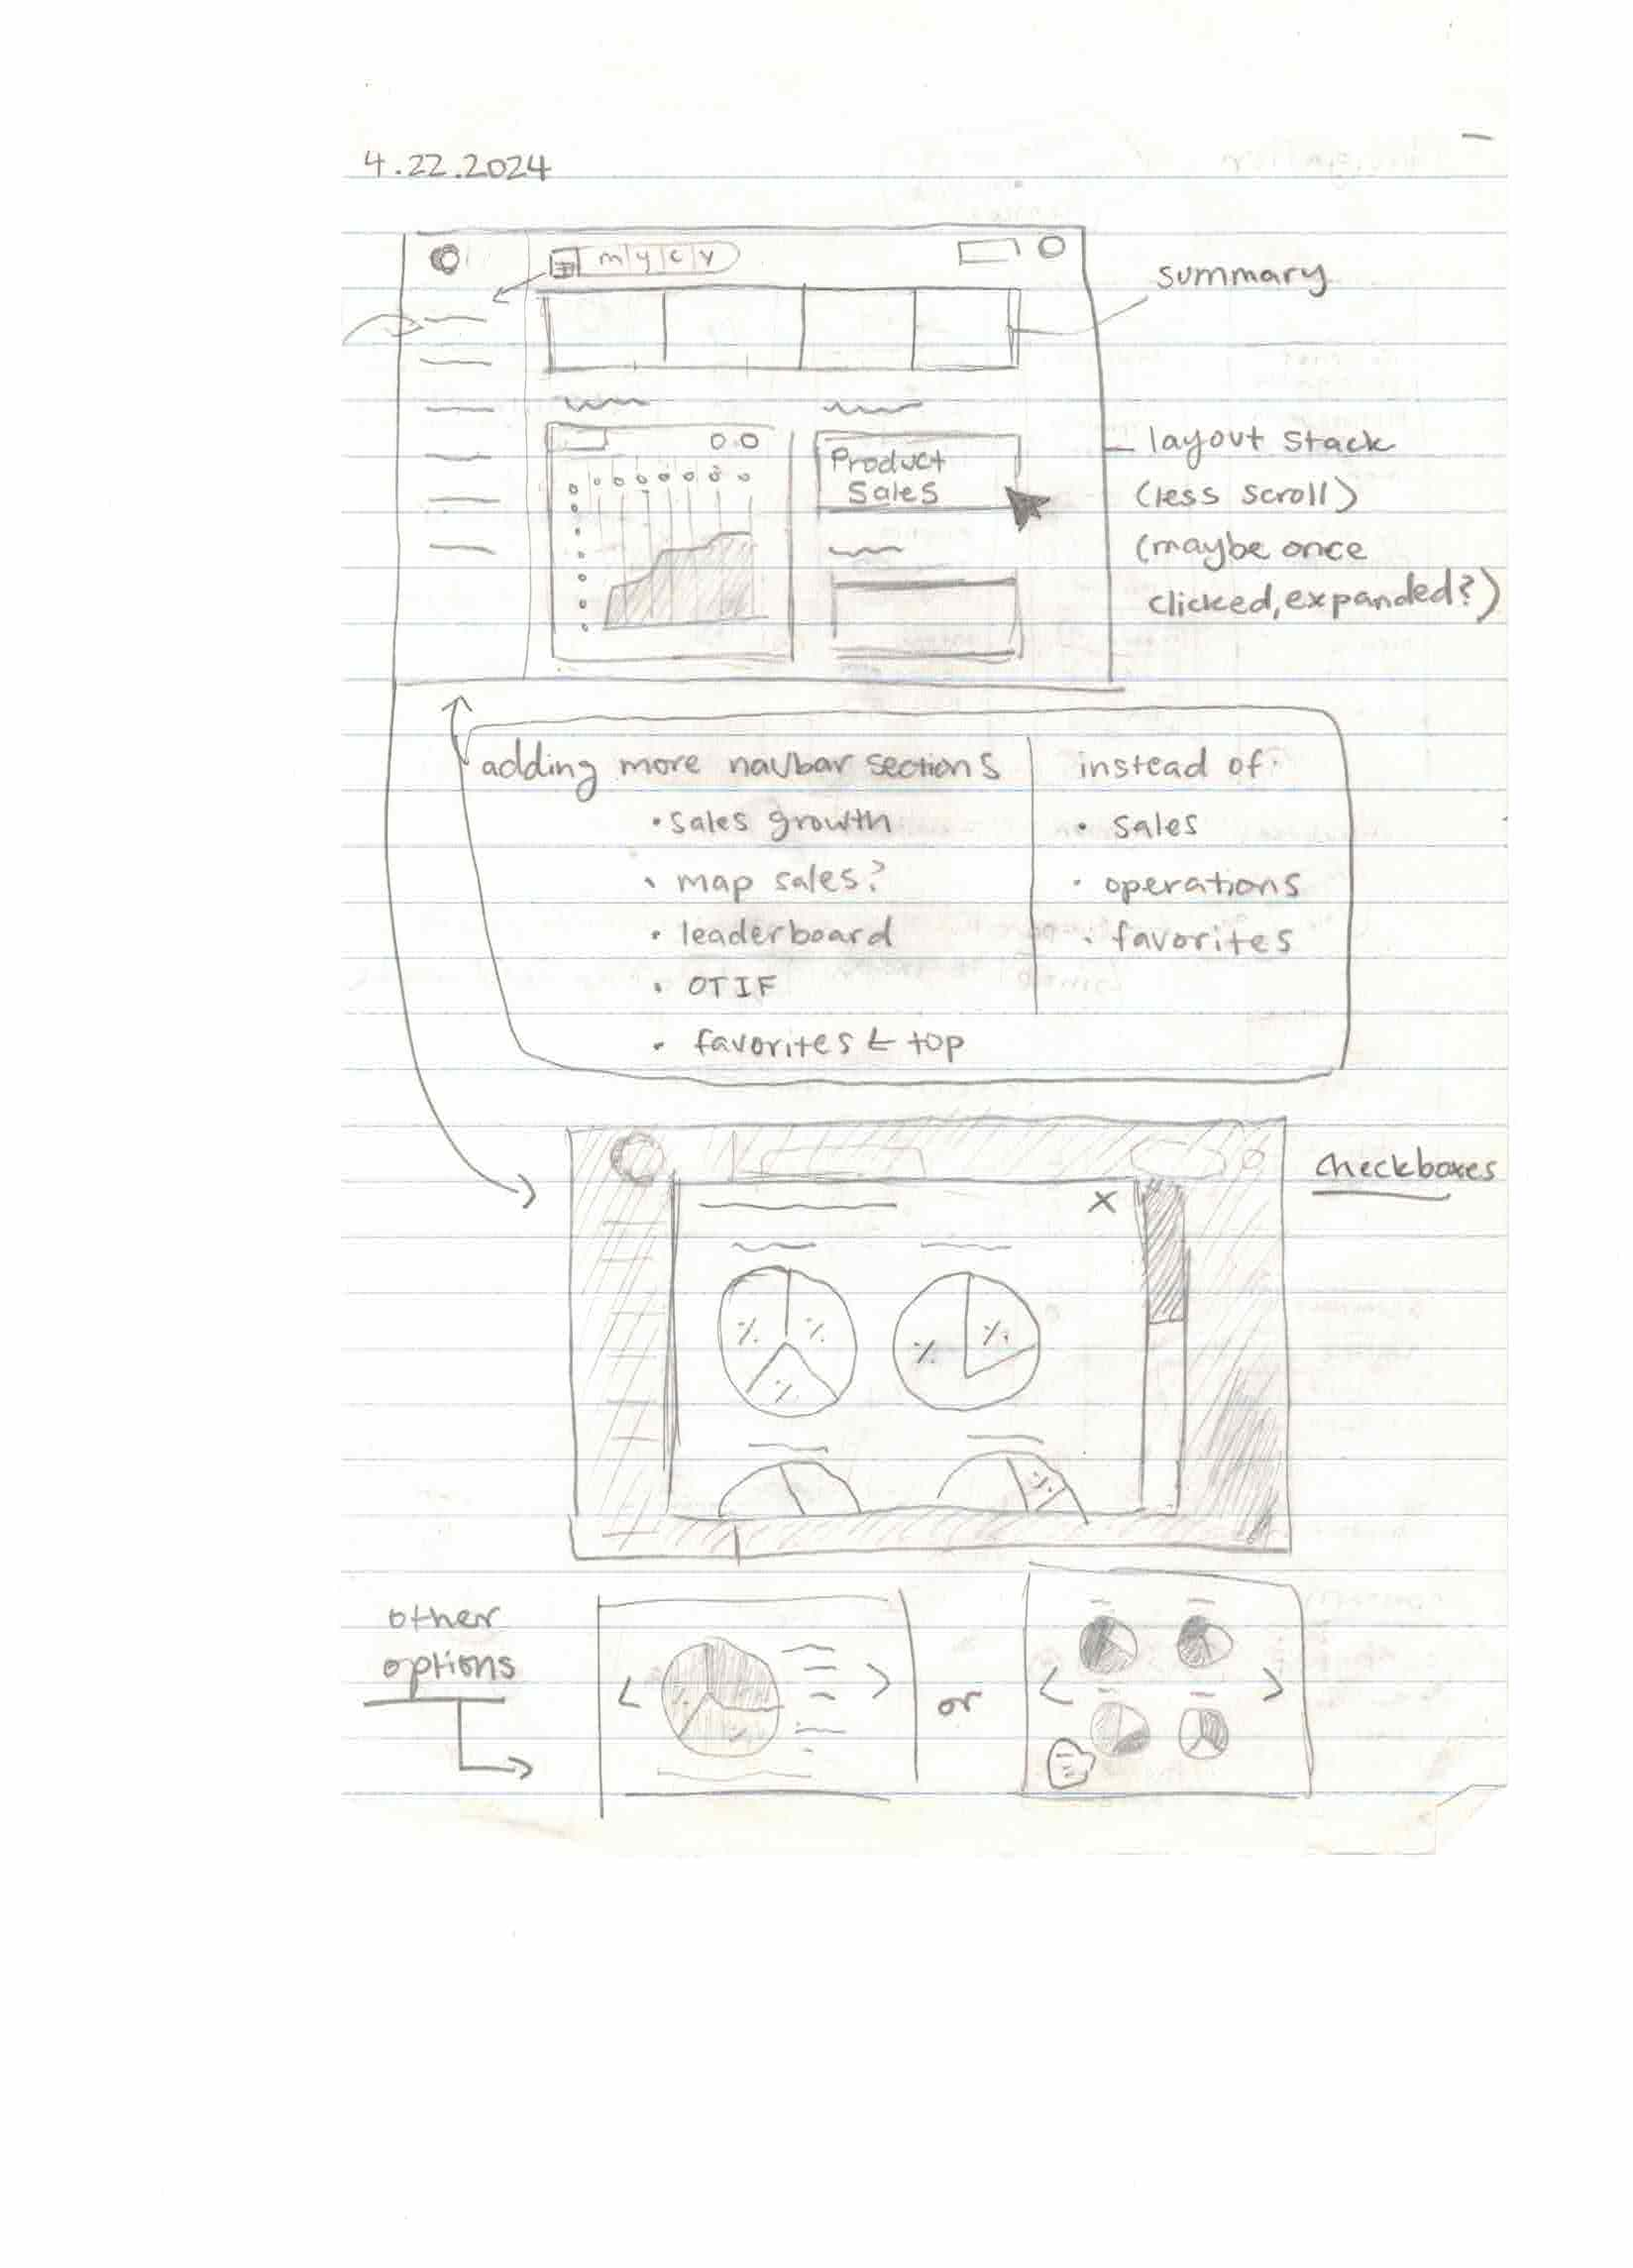 4.22.2024
m|y|c|y
summary
layout stack
(less scroll)
(maybe once
clicked, expanded?)
Product
Sales
adding more navbar sections
• sales growth
• map sales?
• leaderboard
• OTIF
• favorites ← top
instead of:
• sales
• operations
• favorites
checkboxes
X
% %
%
% %
%
other
options
< >
% %
or
< >